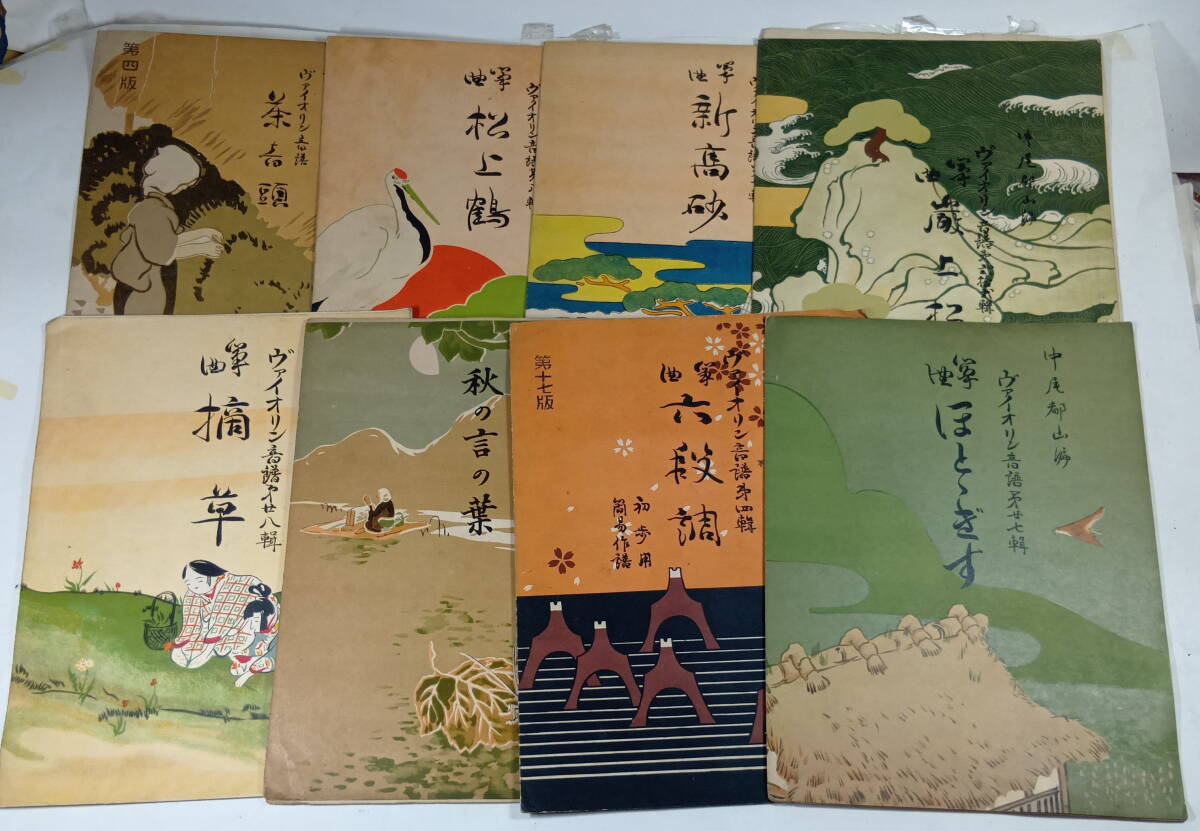 第四版
ヴァイオリン音譜
茶音頭
ヴァイオリン音譜第
輯
箏曲
松上鶴
ヴァイオリン音譜第
輯
箏曲
新高砂
中尾都山編
ヴァイオリン音譜第
輯
箏曲
巌上松
ヴァイオリン音譜第廿八輯
箏曲
摘草
秋の言の葉
ヴァイオリン音譜第四輯
箏曲
六段調
初歩用
簡易作譜
第十七版
中尾都山編
ヴァイオリン音譜第廿七輯
箏曲
ほとゝぎす